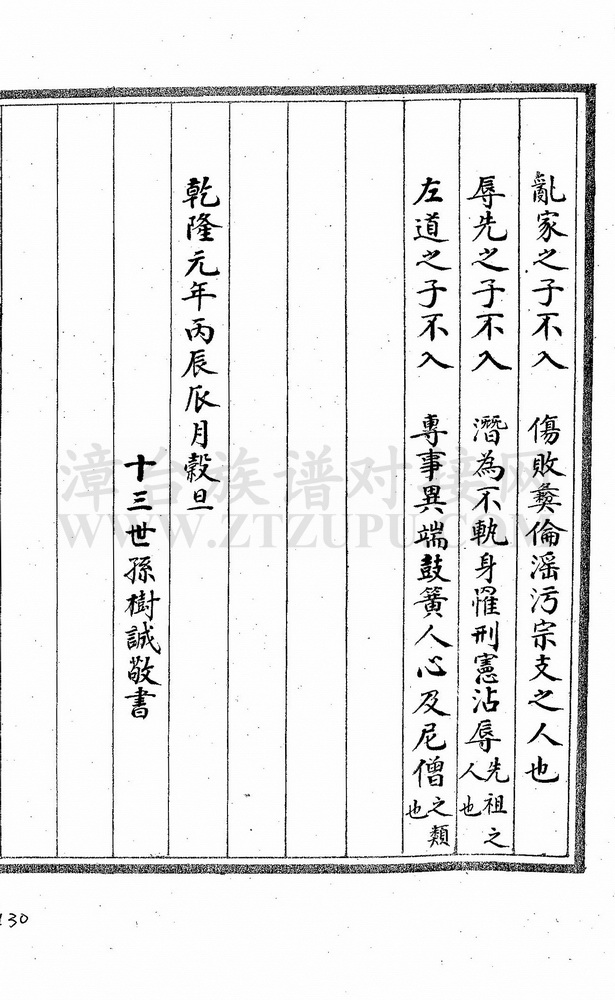 亂家之子不入　傷敗彝倫滛污宗支之人也
辱先之子不入　潛為不軌身罹刑憲沾辱先祖之人也
左道之子不入　專事異端鼓簧人心及尼僧之類也
乾隆元年丙辰㕂月穀旦
十三世孫樹誠敬書
漳台族谱对接网
WWW.ZTZUPU.COM
130